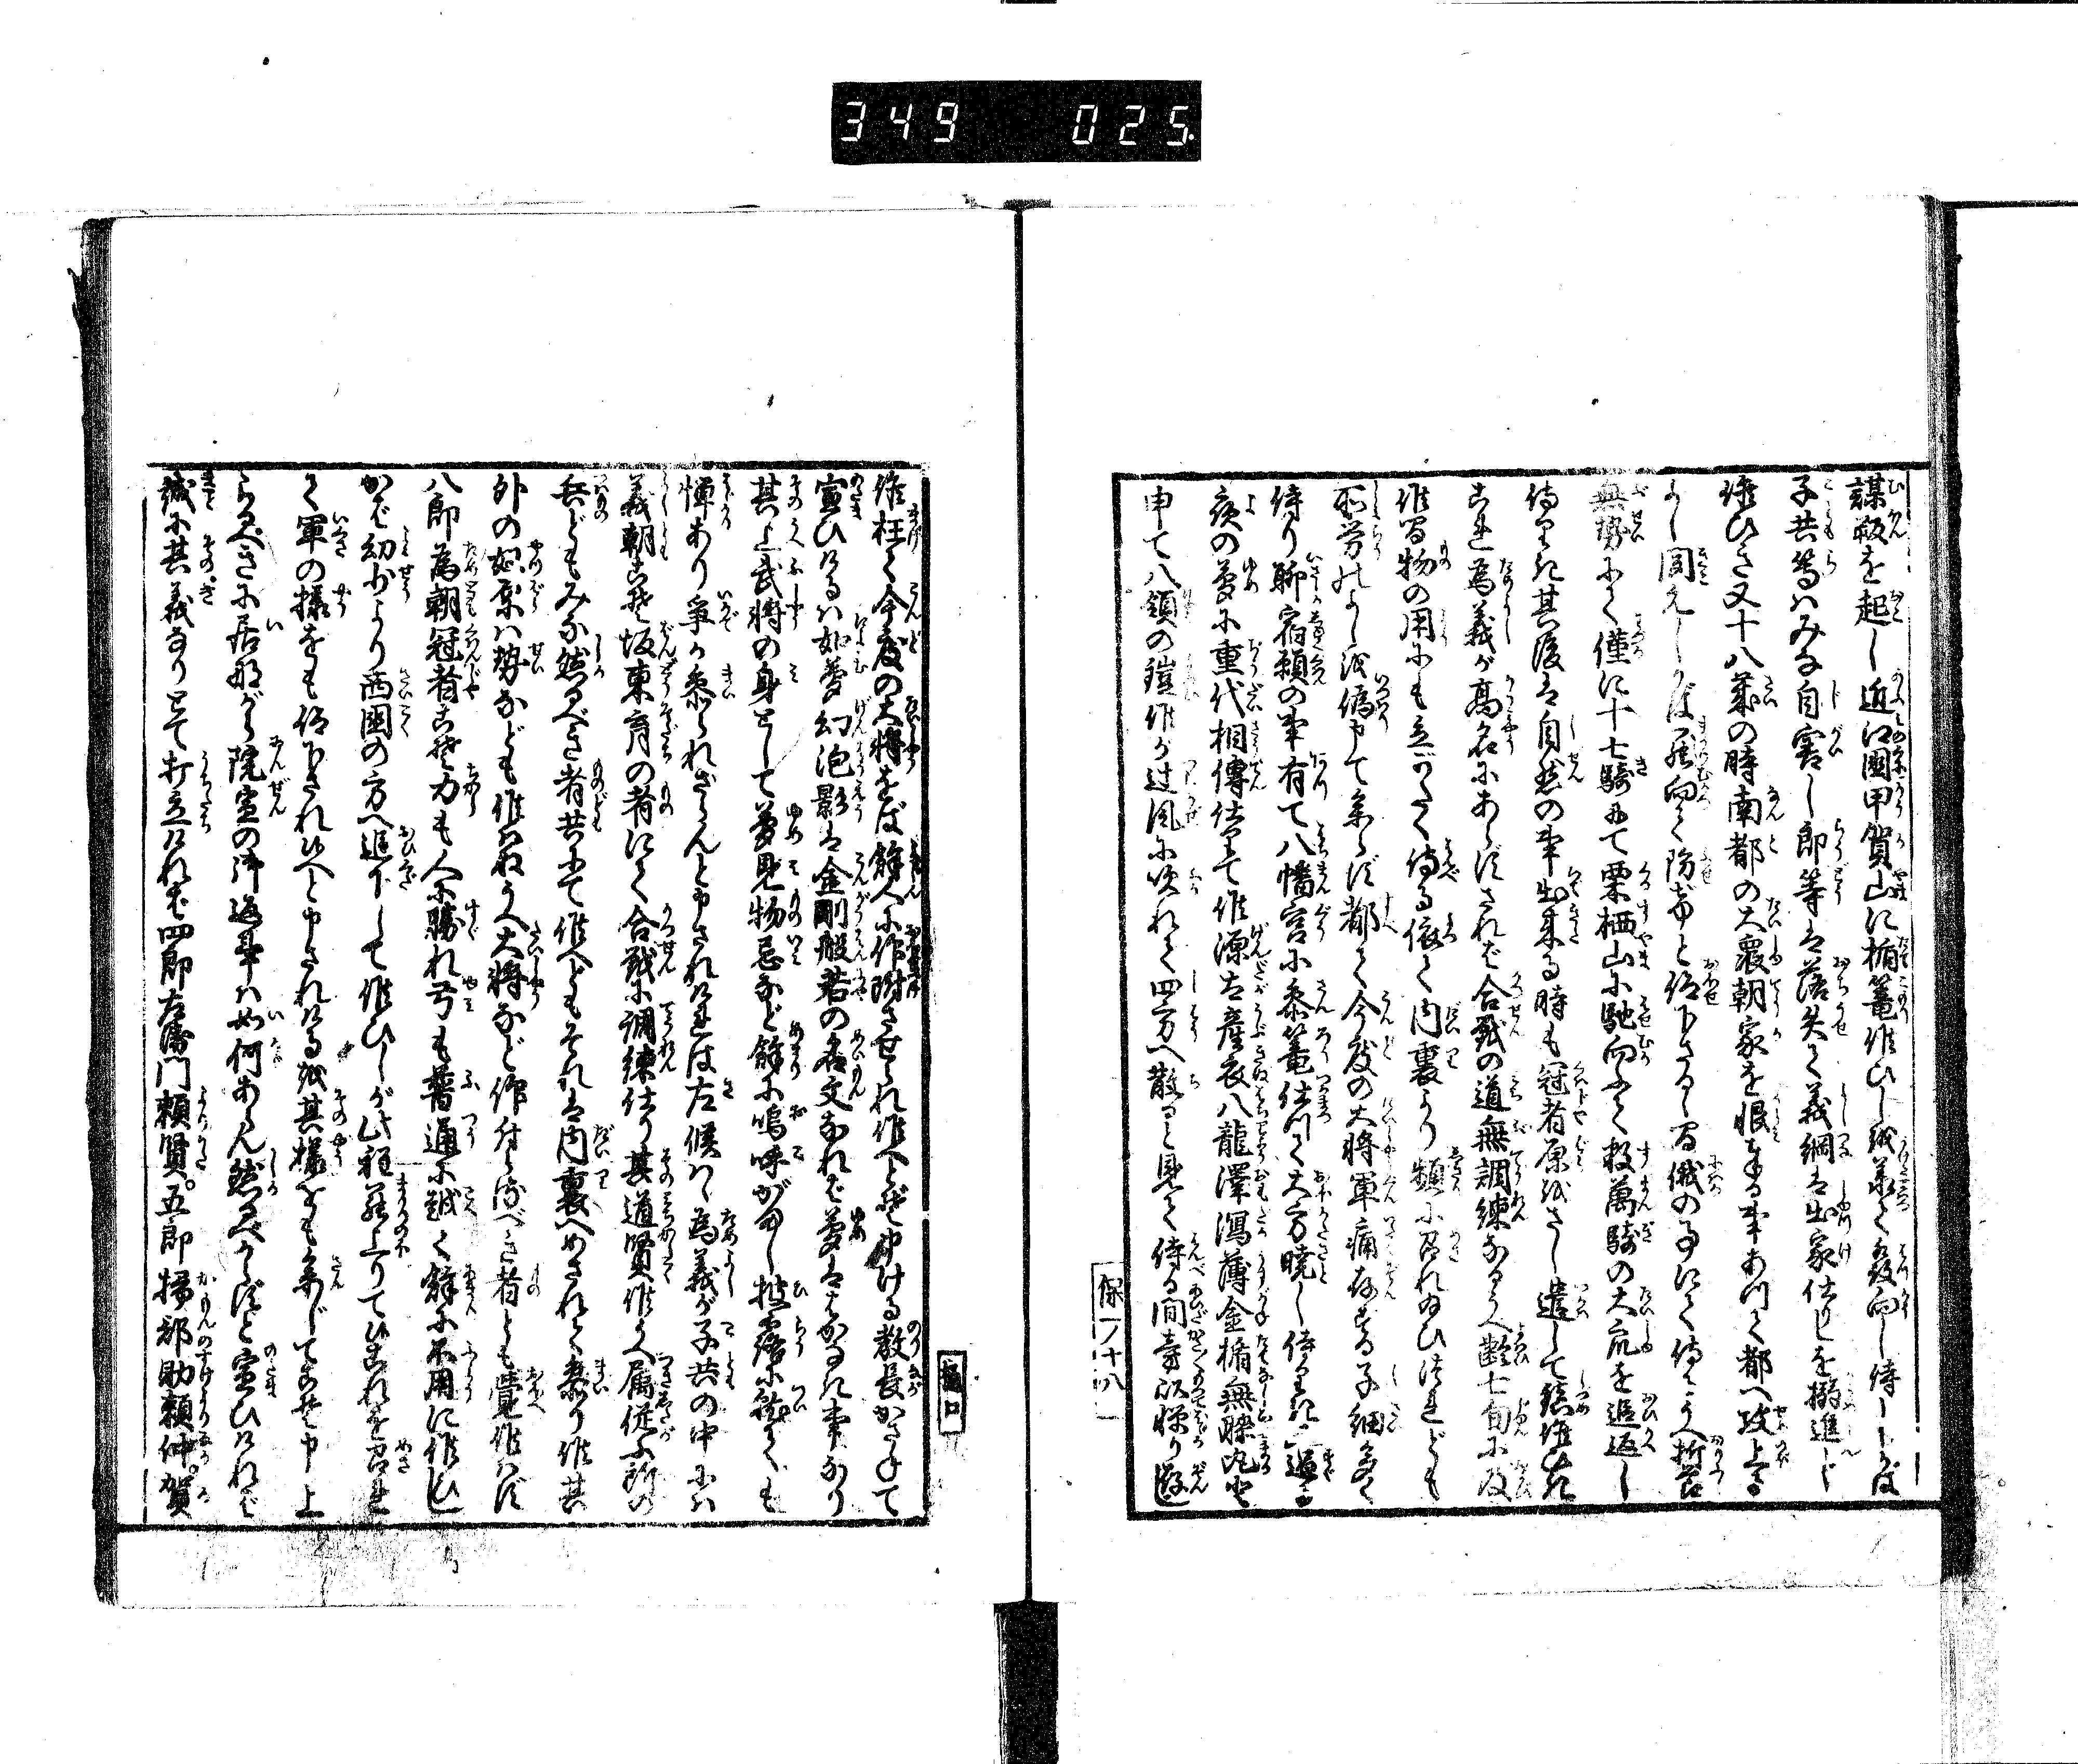 349 025.
謀叛を起し近江國甲賀山に楯籠候ひしを承て發向し侍しかば
子共等はみな自害し郎等は落失て義綱は出家仕しを搦進し
候ひき又十八歳の時南都の大衆朝家を恨奉る事あつて都へ攻上る
よし聞えしかば罷向て防げと仰下さるゝ間俄の事にて侍うへ折節
無勢にて僅に十七騎にて栗栖山に馳向ふて数萬騎の大衆を追返し
侍りき其後は自然の事出来る時も冠者原をさし遣して鎮
これ為義が高名にあらずされば合戰の道無調練なるうへ齢七旬に及
候間物の用にも立がたく侍る依て内裏より頻に召れ給ひつれども
所労のよしを偽申て参らず都て今度の大將軍痛存ずる子細多く
侍り聊宿願の事有て八幡宮に参籠仕つて大方暁し侍りきに過る
夜の夢に重代相傳仕りて候源太産衣八龍澤瀉薄金楯無膝丸と
申て八領の鎧候が辻風に吹れて四方へ散ると見て侍る間 憚り
保一ノ十八
候枉て今度の大將をば餘人に仰附させられ候へとぞ申ける教長かさねて
宣ひけるは如夢幻泡影は金剛般若の名文なれば夢ははかなき事なり
其上武將の身として夢見物忌など餘に嗚呼がまし披露に就ても
憚あり爭か参られざらんと申されければ左候はゞ為義が子共の中には
義朝こそ坂東育の者にて合戰に調練仕り其道賢候うへ属從ふ所の
兵どもみな然るべき者共にて候へどもそれは内裏へめされて参り候其
外の は勢なども候はねうへ大將など仰付らるべき者とも覺候はず
八郎為朝冠者こそ力も人に勝れ弓も普通に越て餘に不用に候ひし
かば幼少より西國の方へ追下して候ひしが此程罷上りて候これを召れ
て軍の様をも仰下され候へと申されけるを其様をも参じてこそ申上
らるべきに居ながら院宣の御返事は如何あらん然るべからずと宣ひければ
誠に其義なりとて打立ければ四郎左衛門頼賢。五郎掃部助頼仲。賀